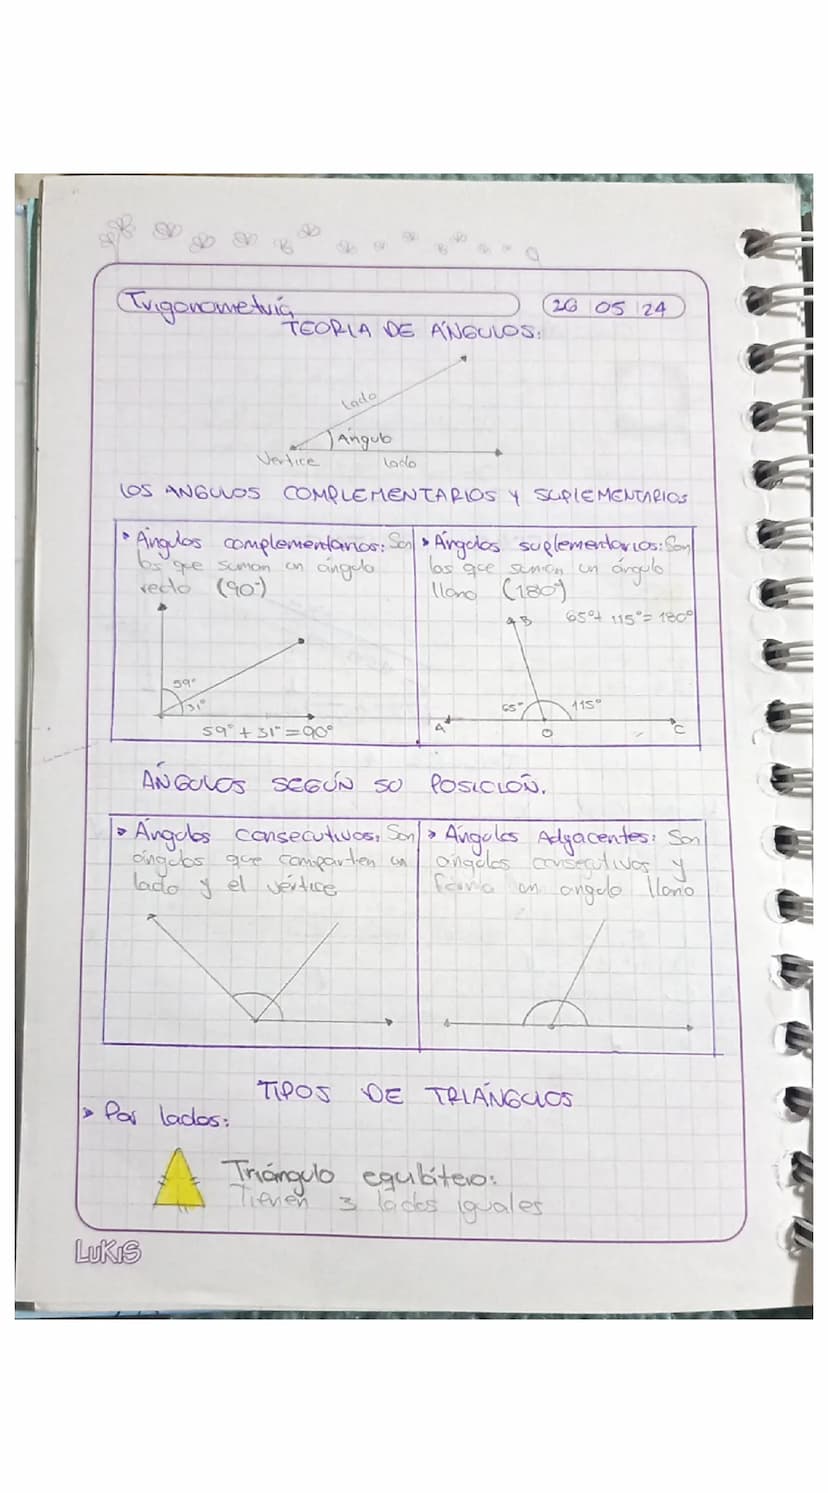 Trigonometría
26 05 24
TEORIA DE ÁNGULOS:
lado
Ángulo
Vertice
lado
LOS ANGULOS COMPLEMENTARIOS Y SUPLEMENTARIOS
Ángulos complementarios: Son
los que suman un ángulo
recto (90°)
59°
31°
59° + 31° = 90°
Ángulos suplementarios: Son
los que suman un ángulo
llano (180°)
B 65° + 115° = 180°
65° 115°
A O C
ÁNGULOS SEGÚN SU POSICIÓN.
Ángulos consecutivos: Son
ángulos que comparten un
lado y el vértice
Ángulos Adyacentes: Son
angulos consecutivos y
forma un angulo llano
TIPOS DE TRIÁNGULOS
Por lados:
Triángulo equilátero:
Tienen 3 lados iguales
LUKIS